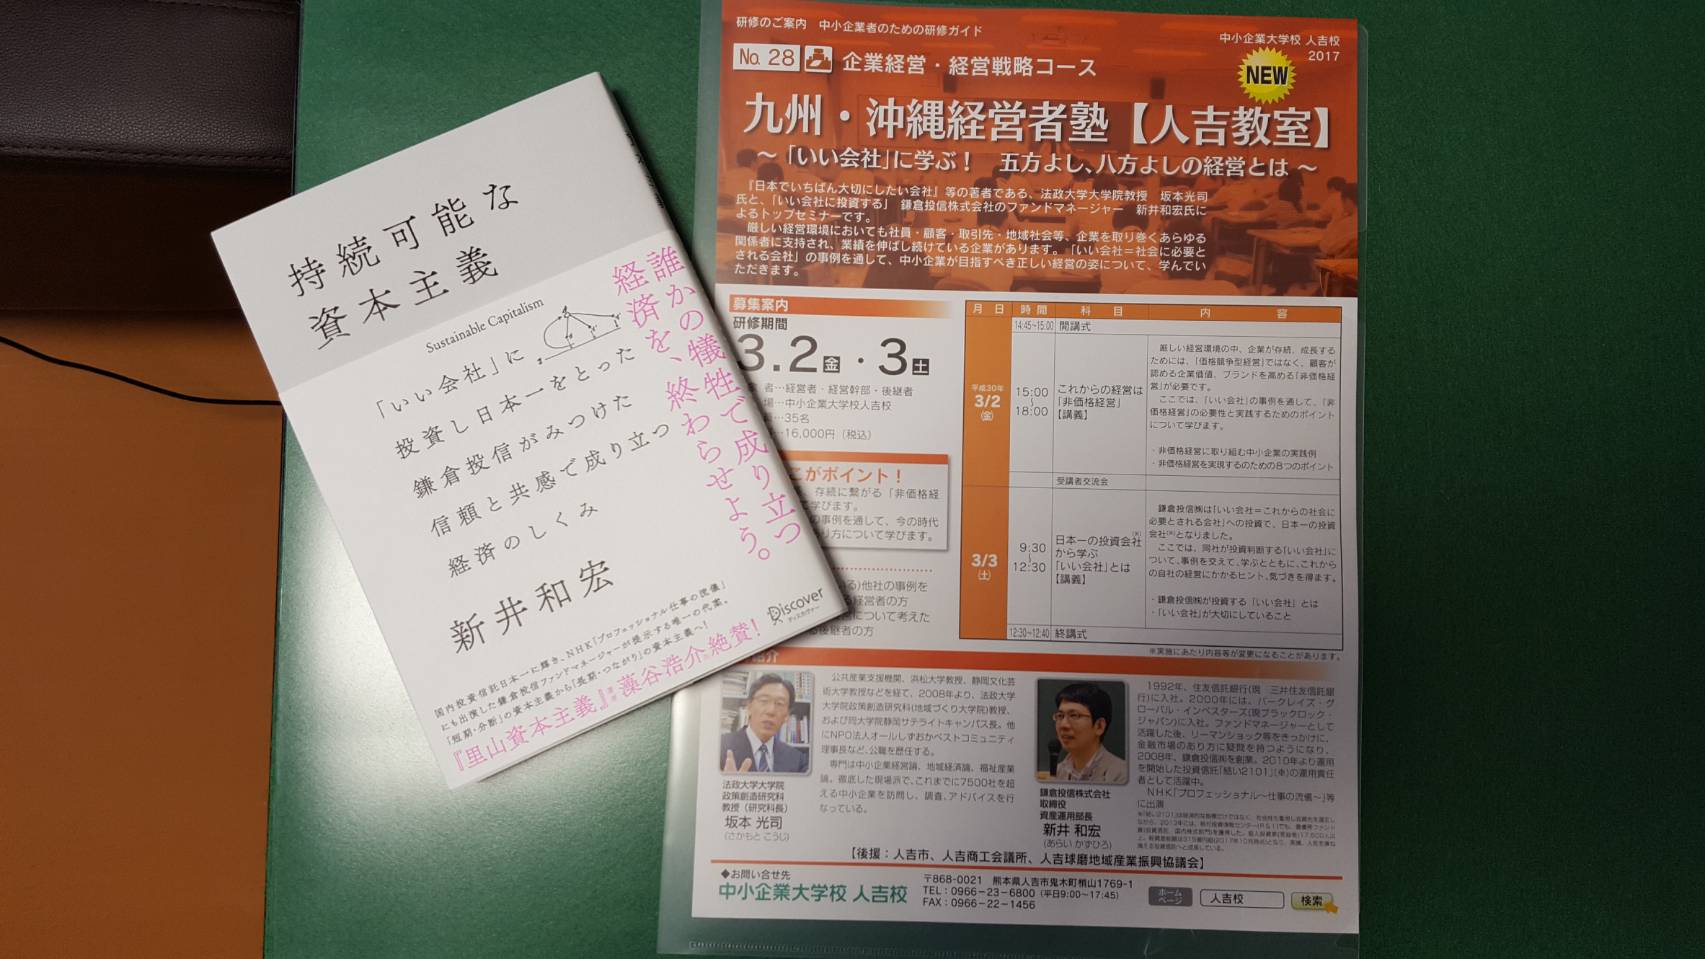 持続可能な
資本主義
Sustainable Capitalism
「いい会社」に
投資し日本一をとった
鎌倉投信がみつけた
信頼と共感で成り立つ
経済のしくみ
新井和宏
誰かの犠牲で成り立つ
経済を、終わらせよう。
Discover
ディスカヴァー
国内投資信託日本一に輝き、NHK「プロフェッショナル仕事の流儀」
にも出演した鎌倉投信ファンドマネージャーが提示する唯一の代案。
「短期・分断」の資本主義から「長期・つながり」の資本主義へ!
『里山資本主義』著者 藻谷浩介氏絶賛!
研修のご案内 中小企業者のための研修ガイド
中小企業大学校 人吉校
2017
No. 28 企業経営・経営戦略コース
NEW
九州・沖縄経営者塾【人吉教室】
~「いい会社」に学ぶ! 五方よし、八方よしの経営とは~
『日本でいちばん大切にしたい会社』等の著者である、法政大学大学院教授 坂本光司
氏と、「いい会社に投資する」 鎌倉投信株式会社のファンドマネージャー 新井和宏氏に
よるトップセミナーです。
厳しい経営環境においても社員・顧客・取引先・地域社会等、企業を取り巻くあらゆる
関係者に支持され、業績を伸ばし続けている企業があります。「いい会社=社会に必要と
される会社」の事例を通して、中小企業が目指すべき正しい経営の姿について、学んでい
ただきます。
募集案内
研修期間
3.2金・3土
者…経営者・経営幹部・後継者
場…中小企業大学校人吉校
…35名
…16,000円(税込)
こがポイント!
、存続に繋がる「非価格経
て学びます。
の事例を通して、今の時代
り方について学びます。
る)他社の事例を
経営者の方
について考えた
後継者の方
月 日 時 間 科 目 内 容
14:45~15:00 開講式
平成30年
3/2
(金)
15:00
~
18:00
これからの経営は
「非価格経営」
【講義】
厳しい経営環境の中、企業が存続、成長する
ためには、「価格競争型経営」ではなく、顧客が
認める企業価値、ブランドを高める「非価格経
営」が必要です。
ここでは、「いい会社」の事例を通して、「非
価格経営」の必要性と実践するためのポイント
について学びます。
・非価格経営に取り組む中小企業の実践例
・非価格経営を実現するのための8つのポイント
受講者交流会
3/3
(土)
9:30
~
12:30
日本一の投資会社(※)
から学ぶ
「いい会社」とは
【講義】
鎌倉投信㈱は「いい会社=これからの社会に
必要とされる会社」への投資で、日本一の投資
会社(※)となりました。
ここでは、同社が投資判断する「いい会社」に
ついて、事例を交えて、学ぶとともに、これから
の自社の経営にかかるヒント、気づきを得ます。
・鎌倉投信㈱が投資する「いい会社」とは
・「いい会社」が大切にしていること
12:30~12:40 終講式
※実施にあたり内容等が変更になることがあります。
紹介
公共産業支援機関、浜松大学教授、静岡文化芸
術大学教授などを経て、2008年より、法政大学
大学院政策創造研究科(地域づくり大学院)教授、
および同大学院静岡サテライトキャンパス長。他
にNPO法人オールしずおかベストコミュニティ
理事長など、公職を歴任する。
専門は中小企業経営論、地域経済論、福祉産業
論。徹底した現場派で、これまでに7500社を超
える中小企業を訪問し、調査、アドバイスを行
なっている。
法政大学大学院
政策創造研究科
教授(研究科長)
坂本 光司
(さかもと こうじ)
1992年、住友信託銀行(現 三井住友信託銀
行)に入社。2000年には、バークレイズ・グ
ローバル・インベスターズ(現ブラックロック・
ジャパン)に入社。ファンドマネージャーとして
活躍した後、リーマンショック等をきっかけに、
金融市場のあり方に疑問を持つようになり、
2008年、鎌倉投信㈱を創業。2010年より運用
を開始した投資信託「結い2101」(※)の運用責任
者として活躍中。
NHK「プロフェッショナル~仕事の流儀~」等
に出演
鎌倉投信株式会社
取締役
資産運用部長
新井 和宏
(あらい かずひろ)
【後援:人吉市、人吉商工会議所、人吉球磨地域産業振興協議会】
◆お問い合せ先
中小企業大学校 人吉校
〒868-0021 熊本県人吉市鬼木町梢山1769-1
TEL:0966-23-6800(平日9:00~17:45)
FAX:0966-22-1456
ホーム
ページ
人吉校
検索